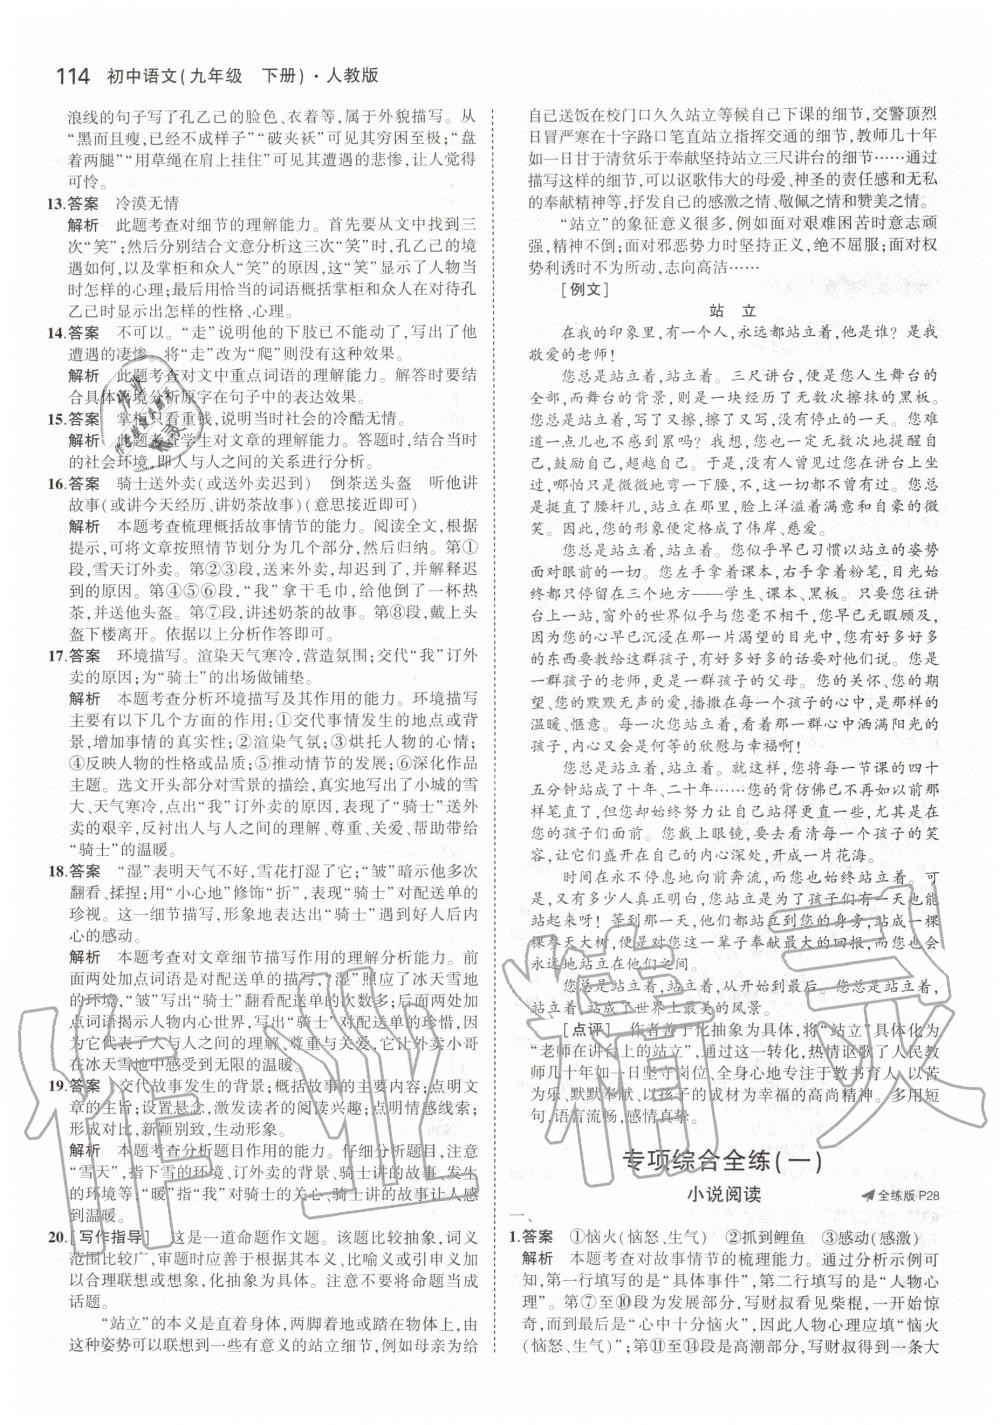 114 初中语文(九年级　下册)·人教版
浪线的句子写了孔乙己的脸色、衣着等,属于外貌描写。从
“黑而且瘦,已经不成样子”“破夹袄”可见其穷困至极;“盘
着两腿”“用草绳在肩上挂住”可见其遭遇的悲惨,让人觉得
可怜。
13.答案　冷漠无情
解析　此题考查对细节的理解能力。首先要从文中找到三
次“笑”;然后分别结合文意分析这三次“笑”时,孔乙己的境
遇如何,以及掌柜和众人“笑”的原因,这“笑”显示了人物当
时怎样的心理;最后用恰当的词语概括掌柜和众人在对待孔
乙己时显示出怎样的性格、心理。
14.答案　不可以。“走”说明他的下肢已不能动了,写出了他
遭遇的凄惨。将“走”改为“爬”则没有这种效果。
解析　此题考查对文中重点词语的理解能力。解答时要结
合具体语境分析原字在句子中的表达效果。
15.答案　掌柜只看重钱,说明当时社会的冷酷无情。
解析　此题考查学生对文章的理解能力。答题时,结合当时
的社会环境,即人与人之间的关系进行分析。
16.答案　骑士送外卖(或送外卖迟到)　倒茶送头盔　听他讲
故事(或讲今天经历、讲奶茶故事)(意思接近即可)
解析　本题考查梳理概括故事情节的能力。阅读全文,根据
提示,可将文章按照情节划分为几个部分,然后归纳。第①
段,雪天订外卖。第②③段,送来外卖,却迟到了,并解释迟
到的原因。第④⑤⑥段,“我”拿干毛巾,给他倒了一杯热
茶,并送他头盔。第⑦段,讲述奶茶的故事。第⑧段,戴上头
盔下楼离开。依据以上分析作答即可。
17.答案　环境描写。渲染天气寒冷,营造氛围;交代“我”订外
卖的原因;为“骑士”的出场做铺垫。
解析　本题考查分析环境描写及其作用的能力。环境描写
主要有以下几个方面的作用:①交代事情发生的地点或背
景,增加事情的真实性;②渲染气氛;③烘托人物的心情;
④反映人物的性格或品质;⑤推动情节的发展;⑥深化作品
主题。选文开头部分对雪景的描绘,真实地写出了小城的雪
大、天气寒冷,点出“我”订外卖的原因,表现了“骑士”送外
卖的艰辛,反衬出人与人之间的理解、尊重、关爱、帮助带给
“骑士”的温暖。
18.答案　“湿”表明天气不好,雪花打湿了它;“皱”暗示他多次
翻看、揉捏;用“小心地”修饰“折”,表现了“骑士”对配送单的
珍视。这一细节描写,形象地表达出“骑士”遇到好人后内
心的感动。
解析　本题考查对文章细节描写作用的理解分析能力。前
面两处加点词语是对配送单的描写,“湿”照应了冰天雪地
的环境,“皱”写出“骑士”翻看配送单的次数多;后面两处加
点词语揭示人物内心世界,写出“骑士”对配送单的珍惜,因
为它代表了人与人之间的理解、尊重与关爱,它让外卖小哥
在冰天雪地中感受到无限的温暖。
19.答案　交代故事发生的背景;概括故事的主要内容;点明文
章的主旨;设置悬念,激发读者的阅读兴趣;点明情感线索;
形成对比,新颖别致,生动形象。
解析　本题考查分析题目作用的能力。仔细分析题目,注意
“雪天”,指下雪的环境、订外卖的背景、骑士讲的故事、发生
的环境等;“暖”指“我”对骑士的关心,骑士讲的故事让人感
到温暖。
20.[写作指导]　这是一道命题作文题。该题比较抽象,词义
范围比较广,审题时应善于根据其本义、比喻义或引申义加
以合理联想或想象,化抽象为具体。注意不要将命题当成
话题。
“站立”的本义是直着身体,两脚着地或踏在物体上,由
这种姿势可以联想到一些有意义的站立细节,例如母亲为给
自己送饭在校门口久久站立等候自己下课的细节,交警顶烈
日冒严寒在十字路口笔直站立指挥交通的细节,教师几十年
如一日甘于清贫乐于奉献坚持站立三尺讲台的细节……通过
描写这样的细节,可以讴歌伟大的母爱、神圣的责任感和无私
的奉献精神等,抒发自己的感激之情、敬佩之情和赞美之情。
“站立”的象征意义很多,例如面对艰难困苦时意志顽
强,精神不倒;面对邪恶势力时坚持正义,绝不屈服;面对权
势利诱时不为所动,志向高洁……
[例文]
站　立
在我的印象里,有一个人,永远都站立着,他是谁?是我
敬爱的老师!
您总是站立着,站立着。三尺讲台,便是您人生舞台的
全部,而舞台的背景,则是一块经历了无数次擦抹的黑板。
您总是站立着,写了又擦,擦了又写,没有停止的一天。您难
道一点儿也不感到累吗?我想,您也一定无数次地提醒自
己,鼓励自己,超越自己。于是,您从未有过坐在讲台上坐
过,哪怕只是微微地弯一下腰,不,这一切都不曾有过。您只
是挺直了腰杆儿,站立在那里,脸上洋溢着满意和自豪的微
笑。因此,您的形象便定格成了伟岸、慈爱。
您总是站立着,站立着。您似乎早已习惯以站立的姿势
面对眼前的一切。您左手拿着课本,右手拈着粉笔,目光始
终都只停留在三个地方——学生、课本、黑板。只要您往讲
台上一站,窗外的世界似乎与您毫不相干,您早已无暇顾及,
因为您的心早已沉浸在那一片渴望的目光中,您有好多好多
的东西要教给这一群孩子,有好多好多的话要对他们说。您
是一群孩子的老师,更是一群孩子的父母。您的关怀、您的期
望、您的默默无声的爱,播撒在每一个孩子的心中,是那样的
温暖、惬意。每一次您站立着,看着那一群心中洒满阳光的
孩子,内心又会是何等的欣慰与幸福啊!
您总是站立着,站立着。就这样,您将每一节课的四十
五分钟站成了十年、二十年……您的背仿佛已不再如以前那
样笔直了,但您却始终努力让自己站得更直一些,尤其是在
孩子们面前。您戴上眼镜,要去看清楚每一个孩子的笑
容,让它们在自己的内心深处,开成一片花海。
时间在永不停息地向前奔流,而您也始终站立着。可
是,又有多少人真正明白,您站立是为了孩子们有一天也能够
站起来呀!等到那一天,他们都站立到您的身旁,站成一棵
棵参天大树,便是对您这一辈子奉献最大的回报,而您也会
永远地站立在他们之间。
您总是站立着,站立着,从开始到最后。您总是站立着,
站立着,站成了世界上最美的风景。
[点评]　作者善于化抽象为具体,将“站立”具体化为
“老师在讲台上的站立”,通过这一转化,热情讴歌了人民教
师几十年如一日坚守岗位、全身心地专注于教书育人,以苦
为乐、默默奉献、以孩子的成材为幸福的高尚精神。多用短
句,语言流畅,感情真挚。
专项综合全练(一)
小说阅读
全练版 P28
一、
1.答案　①恼火(恼怒、生气)　②抓到鲤鱼　③感动(感激)
解析　本题考查对故事情节的梳理能力。通过分析示例可
知,第一行填写的是“具体事件”,第二行填写的是“人物心
理”。第⑦至⑩段为发展部分,写财叔看见柴棍,一开始惊
奇,而到最后是“心中十分恼火”,因此人物心理应填“恼火
(恼怒、生气)”;第⑪至⑭段是高潮部分,写财叔得到一条大
作业精灵